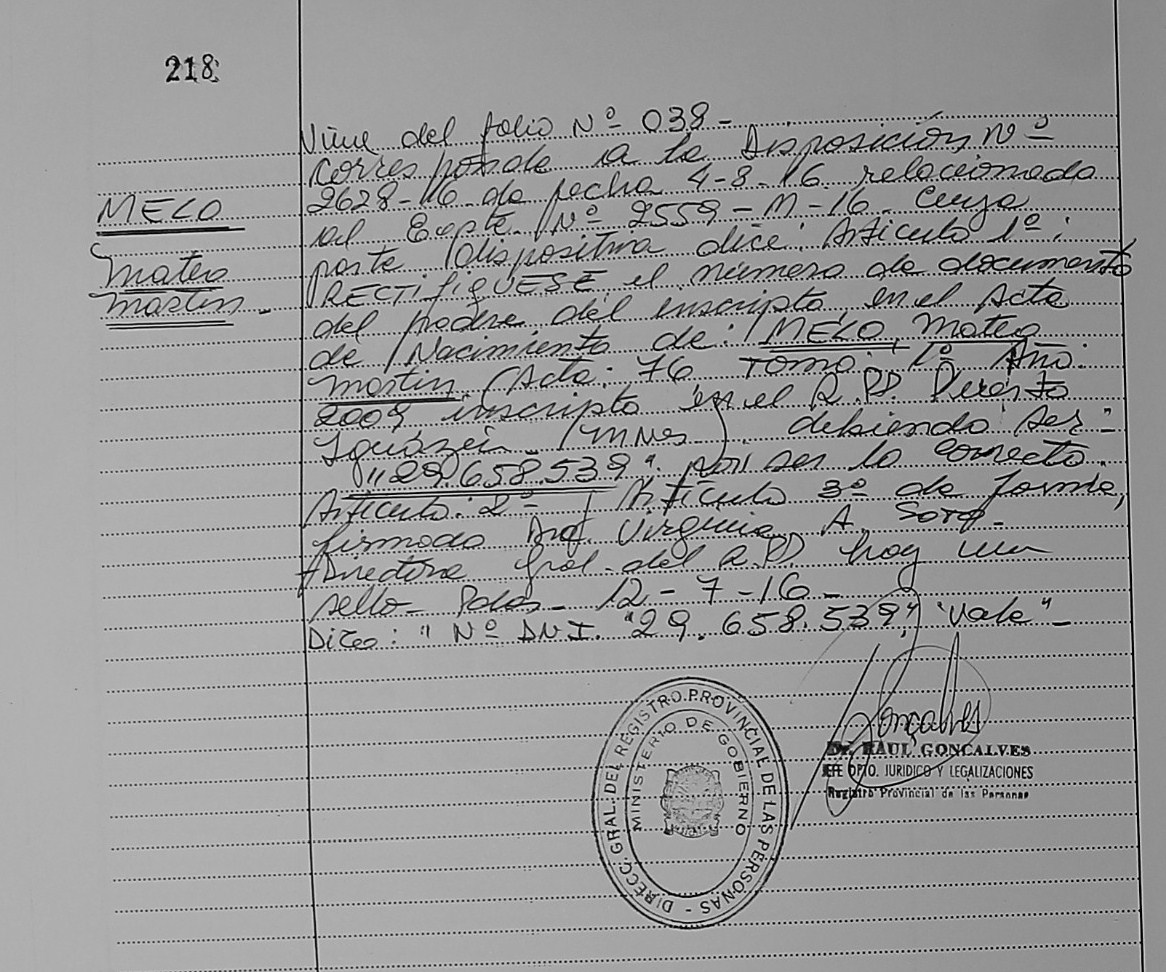 218
MELO
Mateo
Martin -
Viene del folio Nº 038 -
Corresponde a la Disposición Nº
2628-16 de fecha 4-8-16 relacionada
al Expte Nº 2559-M-16. Cuya
parte dispositiva dice: Artículo 1º:
RECTIFIQUESE el número de documento
del padre del inscripto en el Acta
de Nacimiento de: MELO, Mateo
Martin (Acta: 76 Tomo: 1º Año:
2009 inscripto en el R.P.P. Puerto
Iguazú (Mnes) debiendo ser -
"29.658.539". por ser lo correcto.
Artículo: 2º Artículo 3º de forma,
firmado Prof. Virginia A. Soto -
Directora Gral. del R.P.P. hay un
sello - Pdas - 12-7-16 -
Dice: "Nº D.N.I. "29.658.539," "Vale" -
Goncalves
Dr. RAUL GONCALVES
JEFE DPTO. JURIDICO Y LEGALIZACIONES
Registro Provincial de las Personas
DIRECC. GRAL. DEL REGISTRO PROVINCIAL DE LAS PERSONAS -
MINISTERIO DE GOBIERNO